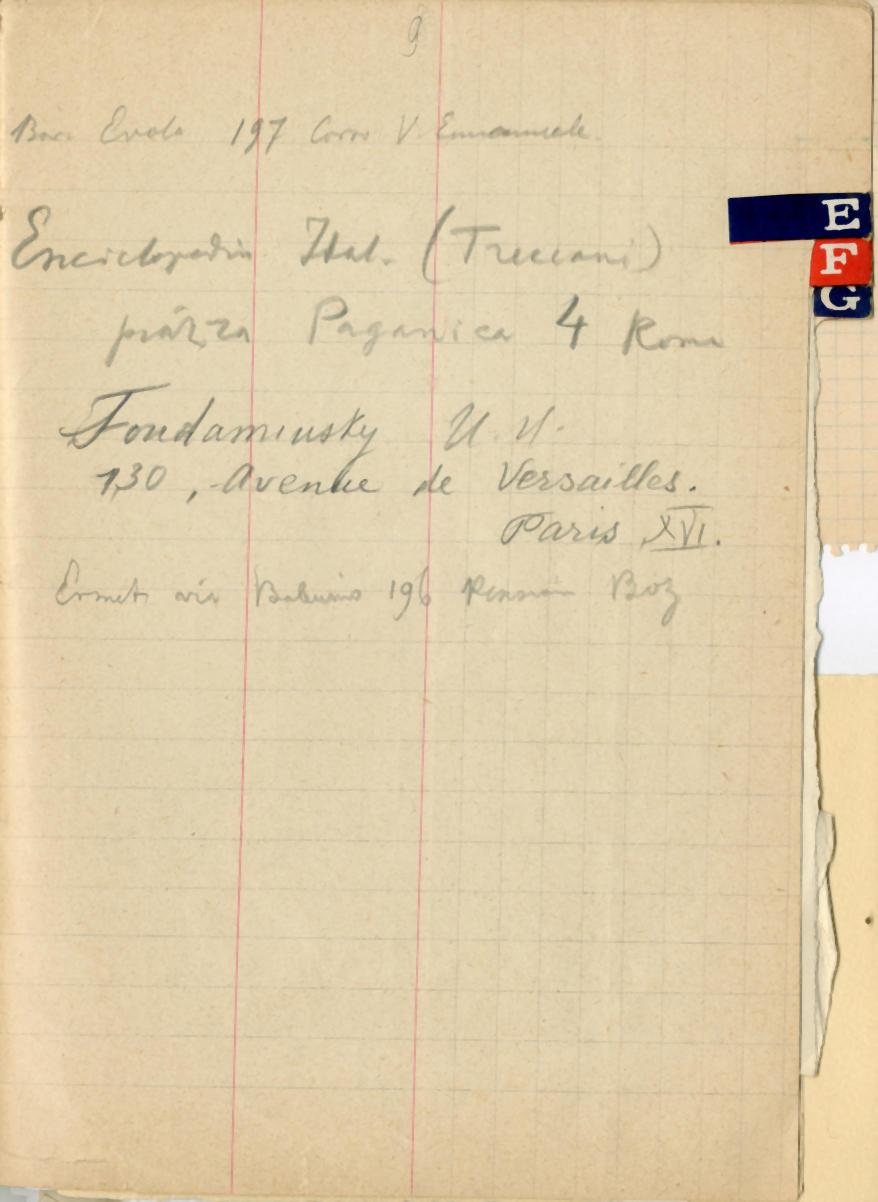 9
Bar. Evola 197 Corso V. Emmanuele.
Enciclopedia Ital. (Treccani)
piazza Paganica 4 Roma
Fondaminsky И. И.
130, Avenue de Versailles.
Paris XVI.
via Babuino 196 Pension Boz
E
F
G